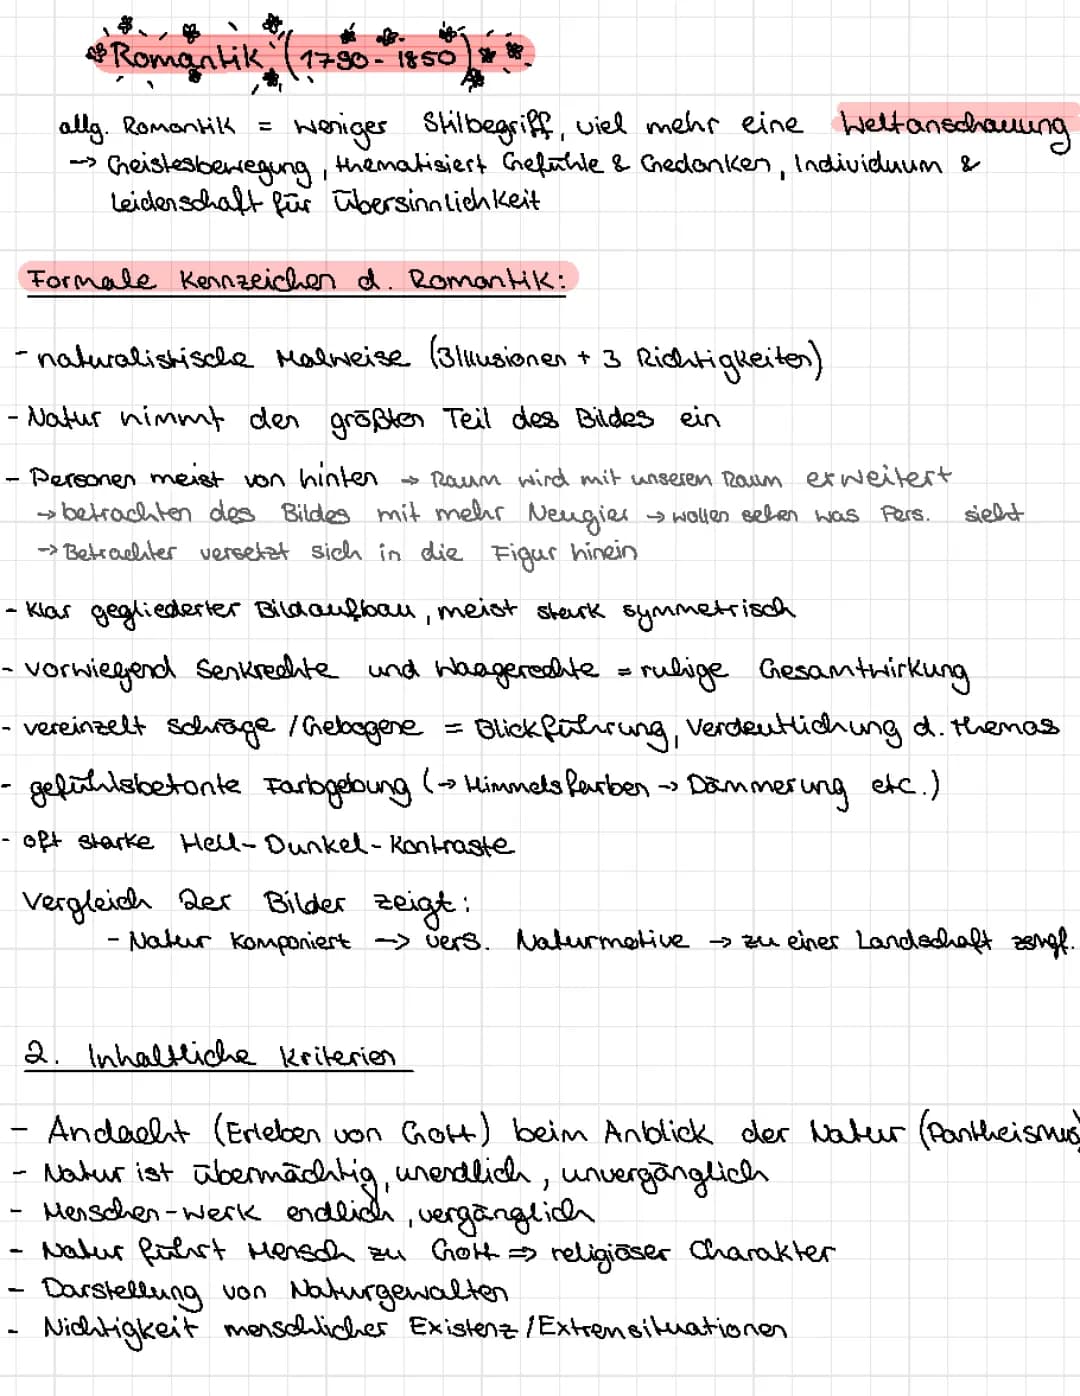 Romantik (1790 - 1850)
allg. Romantik = weniger Stilbegriff, viel mehr eine Weltanschauung
-> Geistesbewegung, thematisiert Gefühle & Gedanken, Individuum &
Leidenschaft für Übersinnlichkeit
Formale Kennzeichen d. Romantik:
- naturalistische Malweise (3 Illusionen + 3 Richtigkeiten)
- Natur nimmt den größten Teil des Bildes ein
- Personen meist von hinten -> Raum wird mit unseren Raum erweitert
-> betrachten des Bildes mit mehr Neugier -> wollen sehen was Pers. sieht
-> Betrachter versetzt sich in die Figur hinein
- klar gegliederter Bildaufbau, meist stark symmetrisch
- vorwiegend Senkrechte und Waagerechte = ruhige Gesamtwirkung
- vereinzelt Schräge / Gebogene = Blickführung, Verdeutlichung d. Themas
- gefühlsbetonte Farbgebung (-> Himmelsfarben -> Dämmerung etc.)
- oft starke Hell-Dunkel-Kontraste
Vergleich 2er Bilder zeigt:
- Natur komponiert -> vers. Naturmotive -> zu einer Landschaft zsmgf.
2. Inhaltliche Kriterien
- Andacht (Erleben von Gott) beim Anblick der Natur (Pantheismus)
- Natur ist übermächtig, unendlich, unvergänglich
- Menschen-Werk endlich, vergänglich
- Natur führt Mensch zu Gott => religiöser Charakter
- Darstellung von Naturgewalten
- Nichtigkeit menschlicher Existenz / Extremsituationen